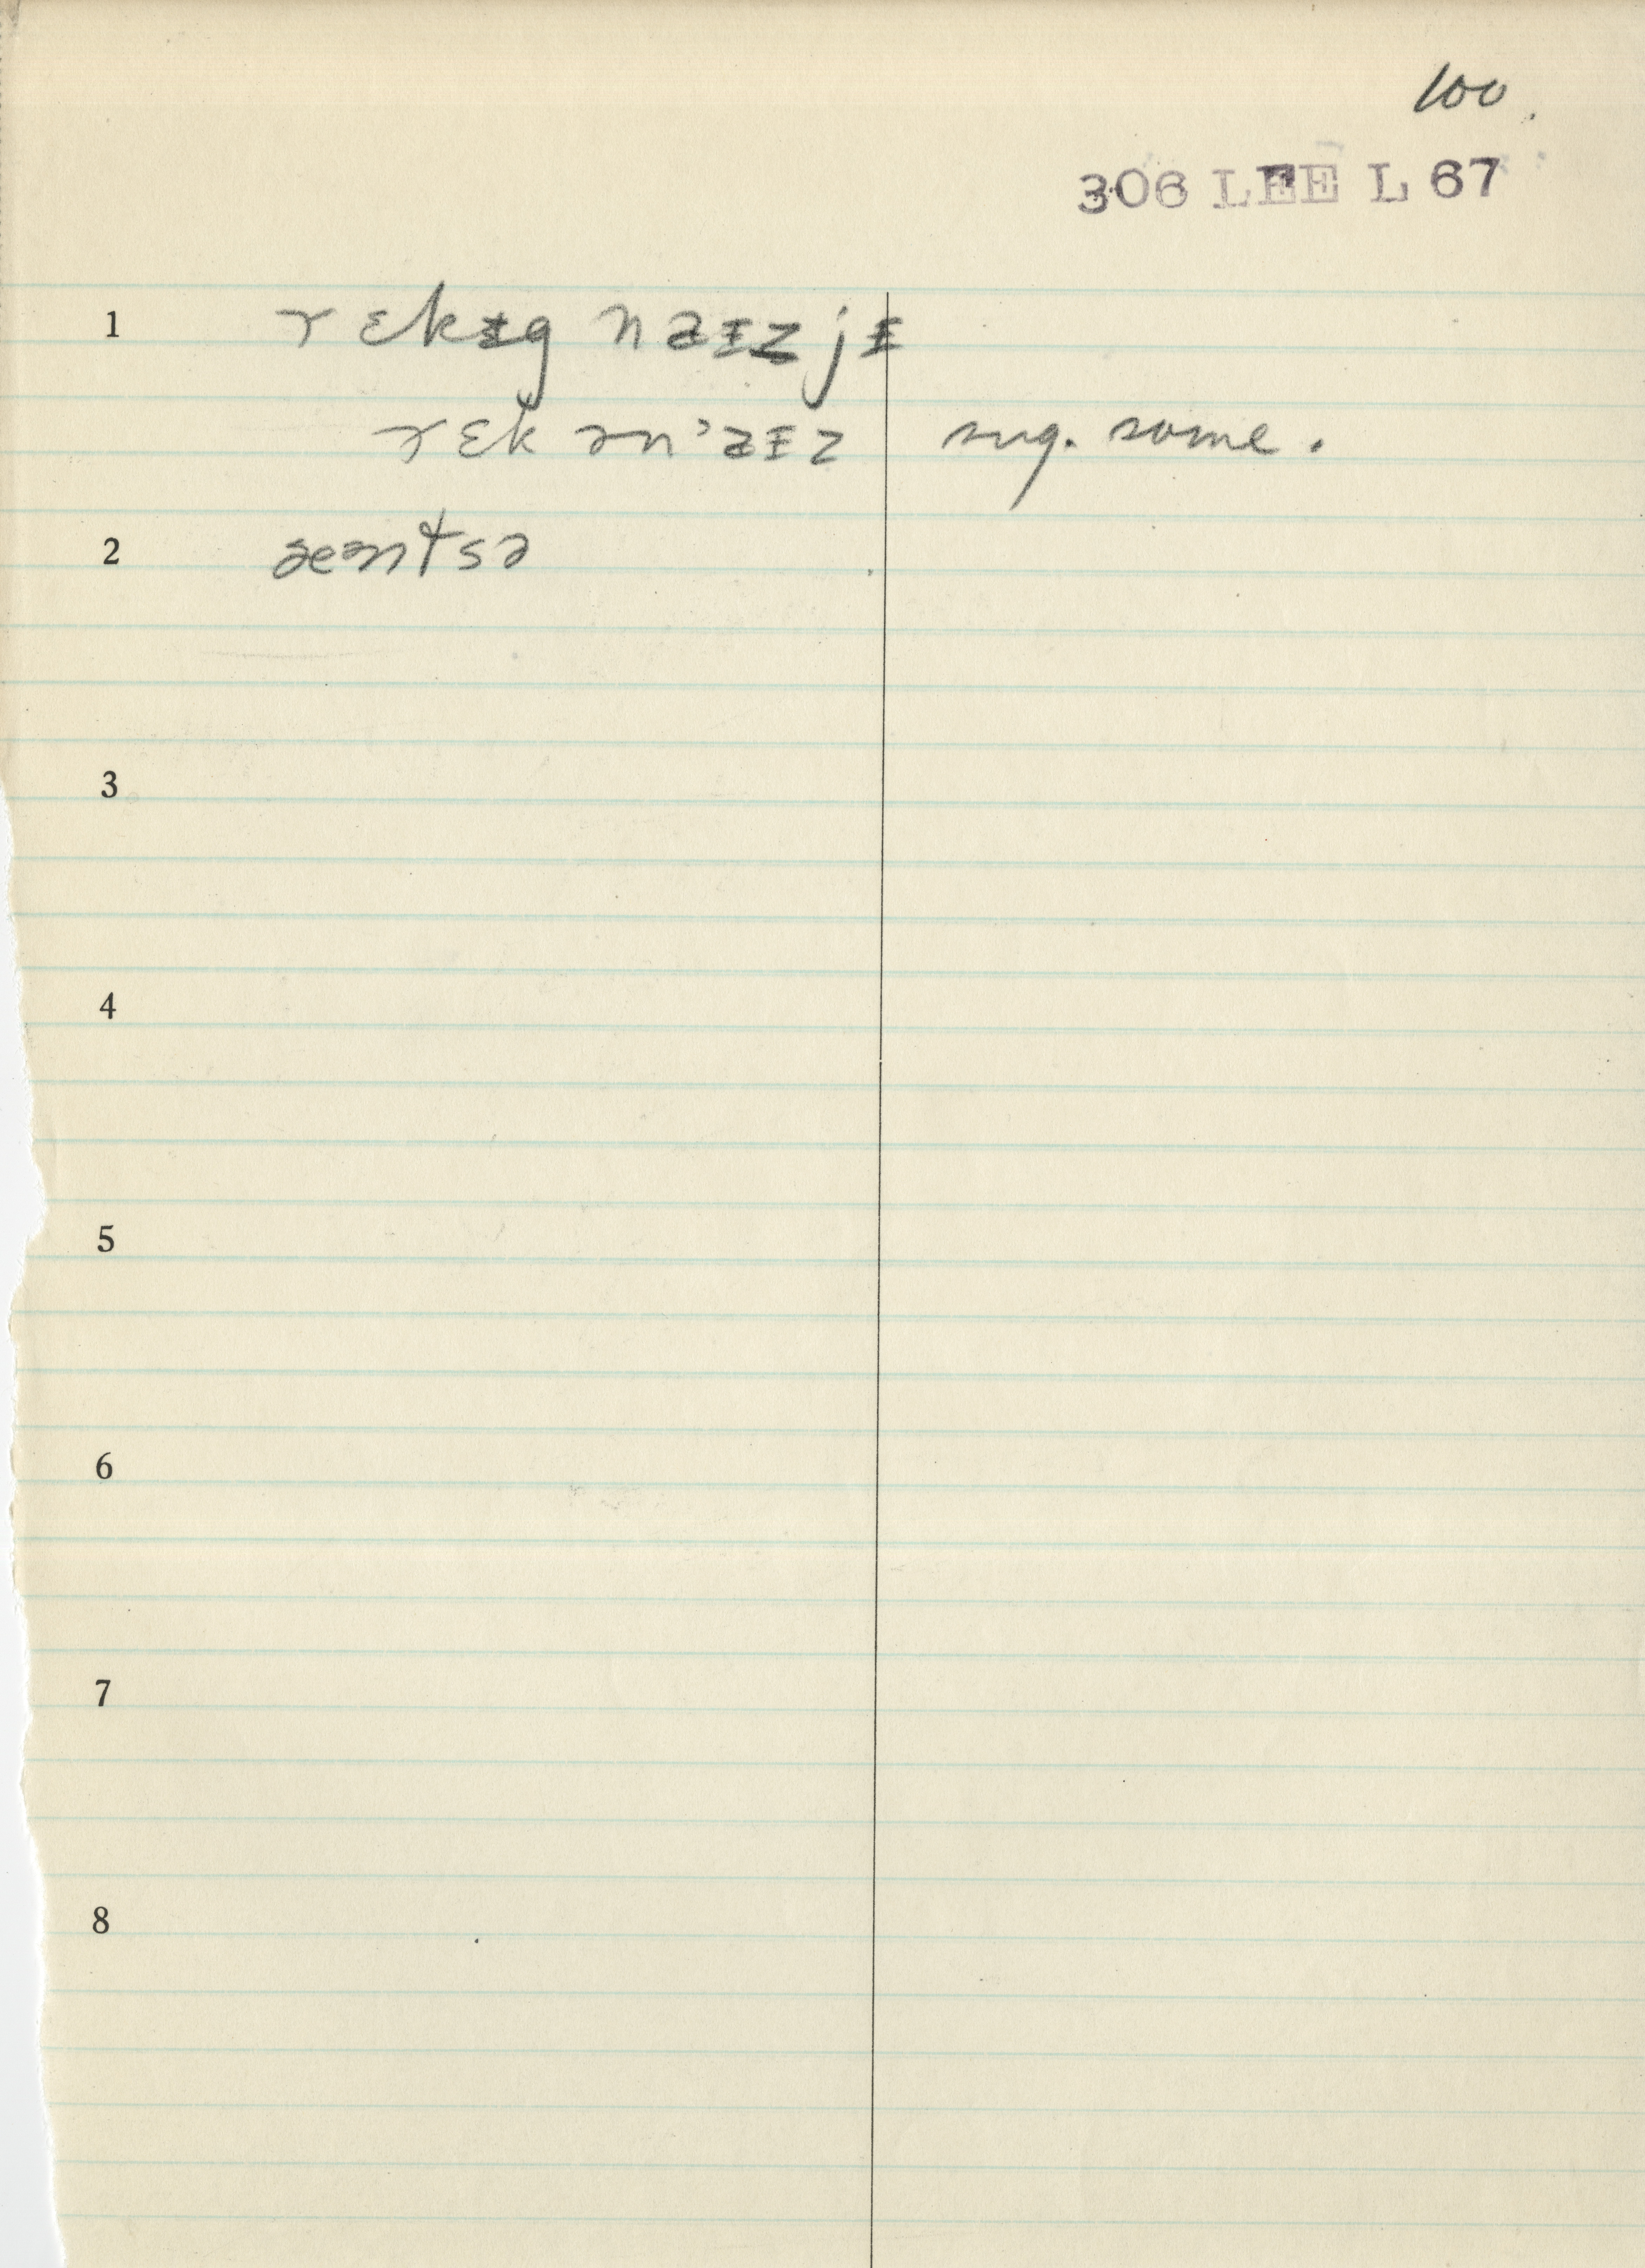 100.
306 LEE L 67
1 r ɛkɨg naɪzjɪ
rɛk ən'aɪz sug. some.
2 æəntsə
3
4
5
6
7
8